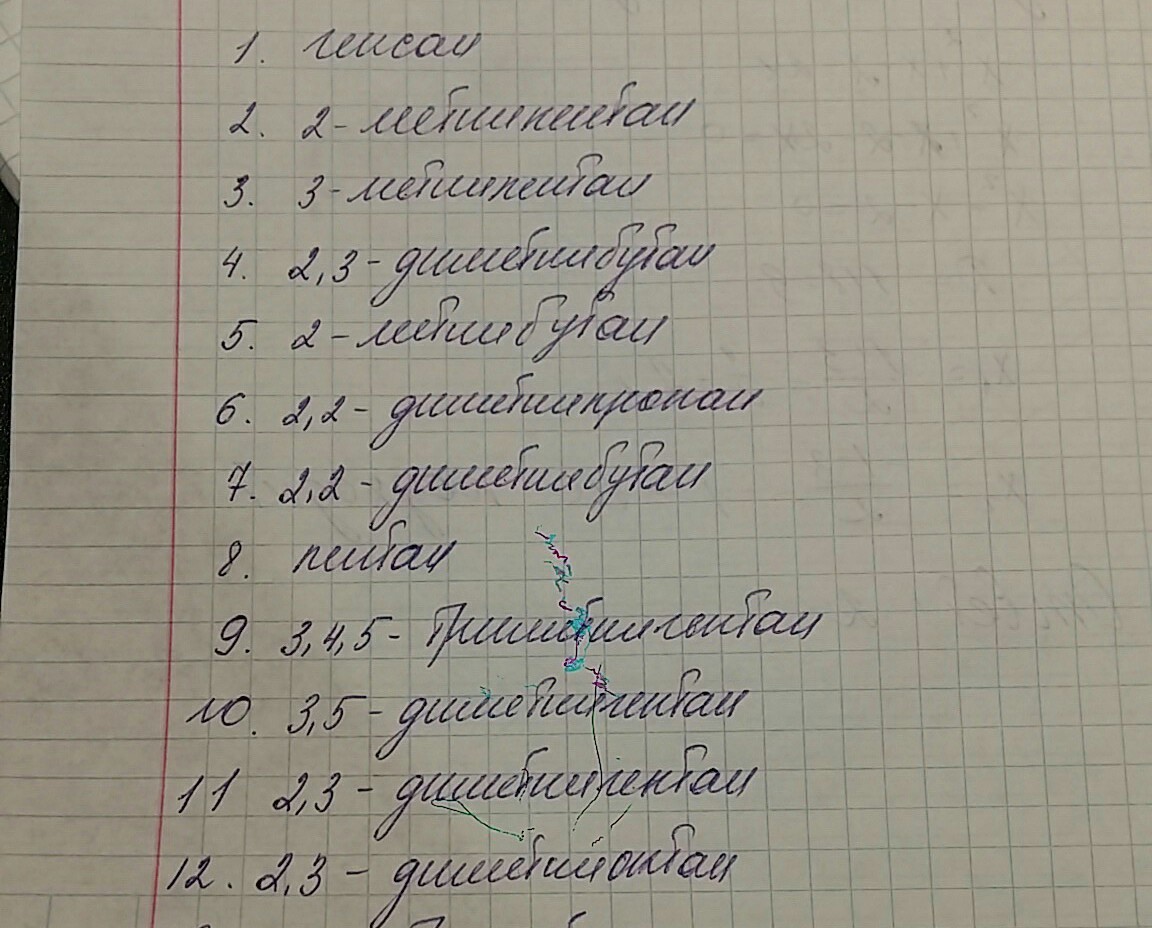 1. гексан
2. 2-метилпентан
3. 3-метилпентан
4. 2,3-диметилбутан
5. 2-метилбутан
6. 2,2-диметилпропан
7. 2,2-диметилбутан
8. пентан
9. 3,4,5-Триметилгептан
10. 3,5-диметилгептан
11 2,3-диметилгептан
12. 2,3-диметилоктан